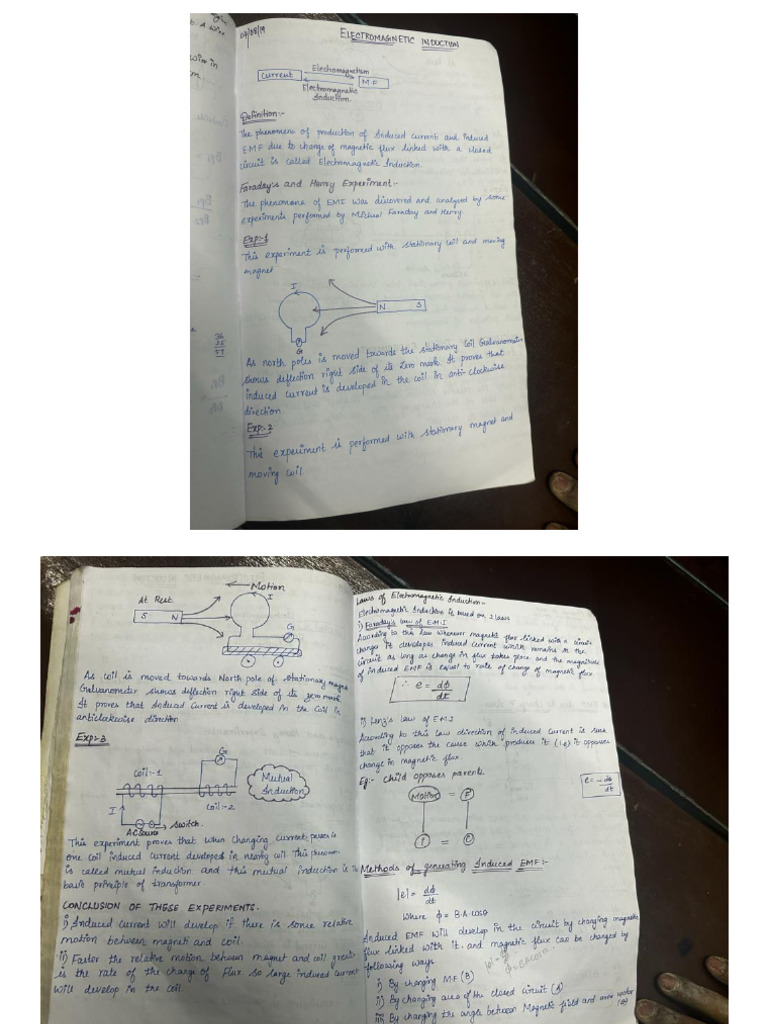 07/08/19
ELECTROMAGNETIC INDUCTION
Current
Electromagnetism
M.F
Electromagnetic
Induction
Definition:-
The phenomena of production of Induced current and induced
EMF due to change of magnetic flux linked with a closed
circuit is called Electromagnetic Induction.
Faraday's and Henry Experiment:-
The phenomena of EMI was discovered and analysed by some
experiments performed by Michual Faraday and Henry.
Exp:-1
This experiment is performed with stationary coil and moving
magnet
I
N S
G
As north poles is moved towards the stationary Coil Galvanometer
shows deflection right side of its zero mark. It proves that
induced current is developed in the coil in anti-clockwise
direction.
Exp:-2
This experiment is performed with stationary magnet and
moving coil.
36
At Rest
Motion
I
S N
G
As coil is moved towards North pole of stationary magnet
Galvanometer shows deflection right side of its zero mark.
It proves that Induced current is developed in the Coil in
anticlockwise direction
Exp:-3
G
Coil:-1
Coil:-2
Mutual
Induction
I
AC Source
Switch.
This experiment proves that when changing current passes in
one coil induced current developed in nearby coil. This phenomena
is called mutual induction and this mutual induction is the
basic principle of transformer.
CONCLUSION OF THESE EXPERIMENTS.
i) Induced Current will develop if there is some relative
motion between magnet and coil.
ii) Faster the relative motion between magnet and coil greater
is the rate of the change of Flux so large induced current
will develop in the coil.
Laws of Electromagnetic Induction:-
Electromagnetic Induction is based on 2 laws
i) Faraday's law of E.M.I
According to this Law whenever magnetic flux linked with a circuit
changes it developes induced current which remains in the
circuit as long as change in flux takes place and the magnitude
of induced EMF is equal to rate of change of magnetic flux
∴ e = dϕ/dt
ii) Lenz's law of E.M.I
According to this law direction of induced current is such
that it opposes the cause which produce it (i.e) it opposes
change in magnetic flux.
Eg:- Child opposes parents.
e = -dϕ/dt
Mother = F
= C
Methods of generating Induced EMF:-
|e| = dϕ/dt
Where ϕ = B.A.cosθ
Induced EMF will develop in the circuit by changing magnetic
flux linked with it. and magnetic flux can be changed by
following ways
i) By changing M.F (B)
ii) By changing area of the closed circuit (A)
iii) By changing the angle between Magnetic field and area vector
(θ)